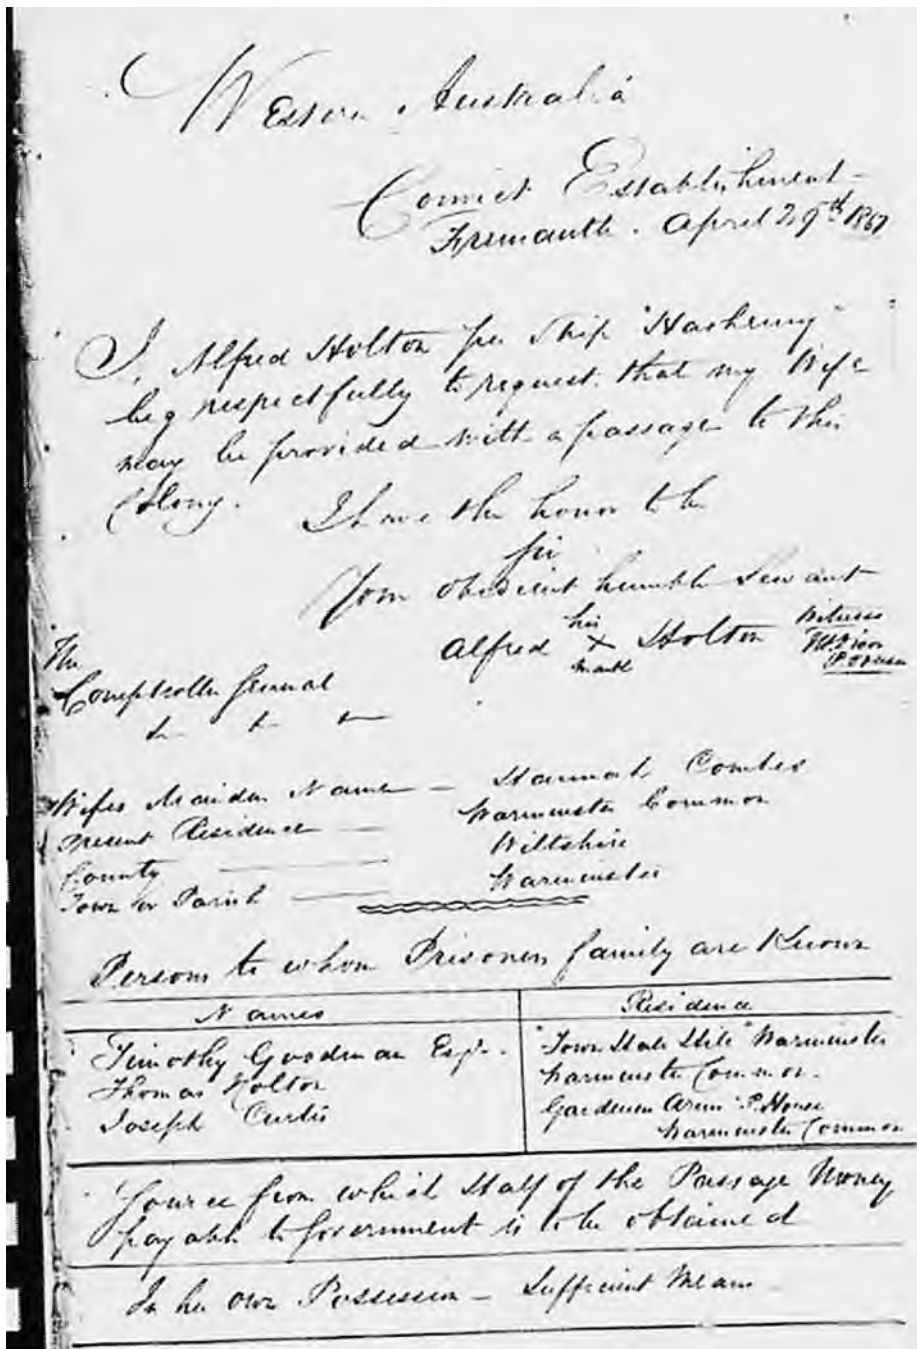 Western Australia
Convict Establishment
Fremantle. April 29th 1857
I, Alfred Holton per Ship "Hashemy"
beg respectfully to request that my Wife
may be provided with a passage to this
Colony.
I have the honor to be
Sir
Your obedient humble Servant
Alfred his X mark Holton
Witness
The
Comptroller General
Wifes Maiden Name — Hannah Combes
Present Residence — Warminster Common
County — Wiltshire
Town or Parish — Warminster
Persons to whom Prisoners family are Known
Names
Residence
Timothy Goodman Esqr.
"Town Hall Hill" Warminster
Thomas Holton
Warminster Common.
Joseph Curtis
Gardeners Arms P. House
Warminster Common
Source from which Half of the Passage Money
payable to Government is to be obtained
In her own Possession — Sufficient Means